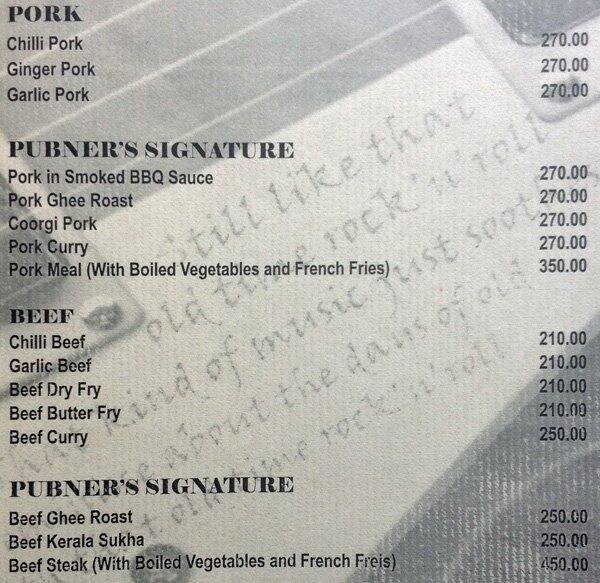 PORK
Chilli Pork 270.00
Ginger Pork 270.00
Garlic Pork 270.00
PUBNER'S SIGNATURE
Pork in Smoked BBQ Sauce 270.00
Pork Ghee Roast 270.00
Coorgi Pork 270.00
Pork Curry 270.00
Pork Meal (With Boiled Vegetables and French Fries) 350.00
BEEF
Chilli Beef 210.00
Garlic Beef 210.00
Beef Dry Fry 210.00
Beef Butter Fry 210.00
Beef Curry 250.00
PUBNER'S SIGNATURE
Beef Ghee Roast 250.00
Beef Kerala Sukha 250.00
Beef Steak (With Boiled Vegetables and French Freis) 450.00
still like that
old time rock'n'roll
kind of music just
about the days of old
old time rock'n'roll